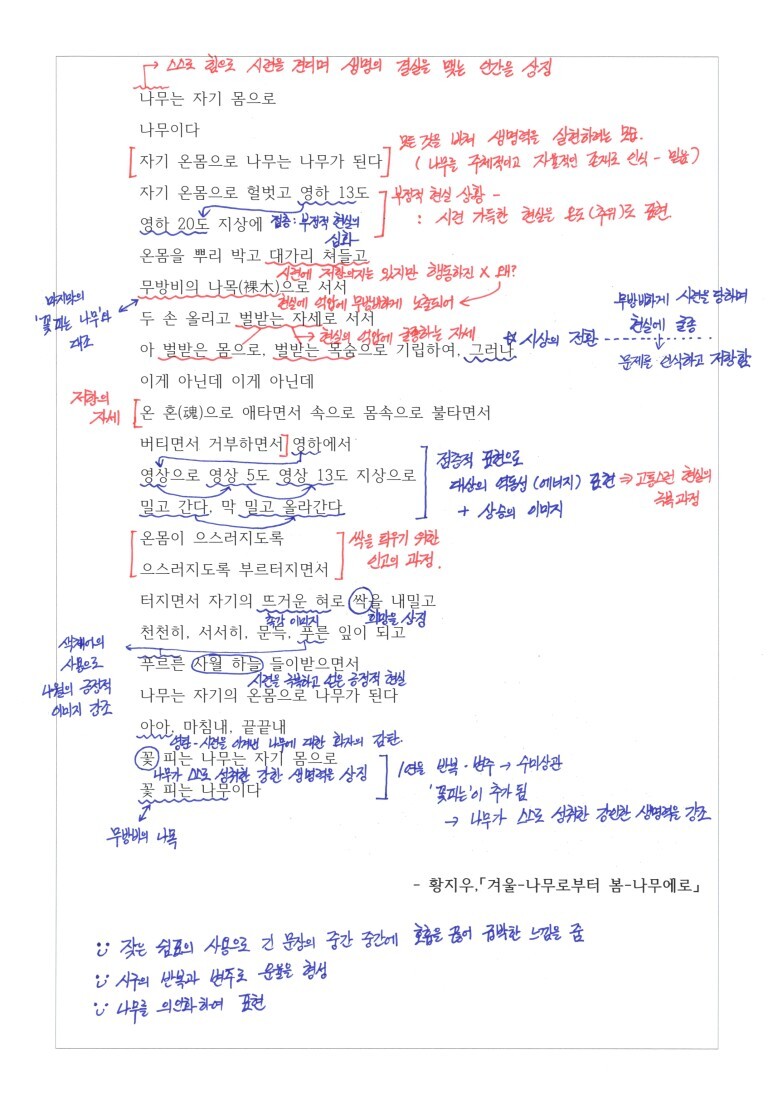 → 스스로 힘으로 시련을 견디며 생명의 결실을 맺는 인간을 상징
나무는 자기 몸으로
나무이다
자기 온몸으로 나무는 나무가 된다
모든 것을 바쳐 생명력을 실현하려는 모습.
(나무를 주체적이고 자율적인 존재로 인식 - 믿음)
자기 온몸으로 헐벗고 영하 13도
부정적 현실 상황 -
: 시련 가득한 현실을 온도(추위)로 표현
영하 20도 지상에
점층 : 부정적 현실의 심화
온몸을 뿌리 박고 대가리 쳐들고
시련에 저항의지는 있지만 행동하진 X 왜?
무방비의 나목(裸木)으로 서서
현실에 억압에 무방비하게 노출되어
마지막의
'꽃피는 나무'와
대조
두 손 올리고 벌받는 자세로 서서
→ 현실의 억압에 굴종하는 자세
아 벌받은 몸으로, 벌받는 목숨으로 기립하여, 그러나
☆ 시상의 전환
무방비하게 시련을 당하며
현실에 굴종
문제를 인식하고 저항함
이게 아닌데 이게 아닌데
저항의
자세
온 혼(魂)으로 애타면서 속으로 몸속으로 불타면서
버티면서 거부하면서 영하에서
영상으로 영상 5도 영상 13도 지상으로
밀고 간다, 막 밀고 올라간다
점층적 표현으로
대상의 역동성 (에너지) 표현 ⇒ 고통스런 현실의
극복 과정
+ 상승의 이미지
온몸이 으스러지도록
으스러지도록 부르터지면서
싹을 틔우기 위한
인고의 과정.
터지면서 자기의 뜨거운 혀로 싹을 내밀고
촉각 이미지
희망을 상징
천천히, 서서히, 문득, 푸른 잎이 되고
색채어의
사용으로
나월의 긍정적
이미지 강조
푸르른 사월 하늘 들이받으면서
시련을 극복하고 얻은 긍정적 현실
나무는 자기의 온몸으로 나무가 된다
아아, 마침내, 끝끝내
영탄 - 시련을 이겨낸 나무에 대한 화자의 감탄.
꽃 피는 나무는 자기 몸으로
나무가 스스로 성취한 강한 생명력을 상징
꽃 피는 나무이다
무방비의 나목
1연을 반복 · 변주 → 수미상관
'꽃피는'이 추가 됨
→ 나무가 스스로 성취한 강인한 생명력을 강조
- 황지우,「겨울-나무로부터 봄-나무에로」
잦은 쉼표의 사용으로 긴 문장의 중간 중간에 호흡을 끊어 급박한 느낌을 줌
시구의 반복과 변주로 운율을 형성
나무를 의인화하여 표현